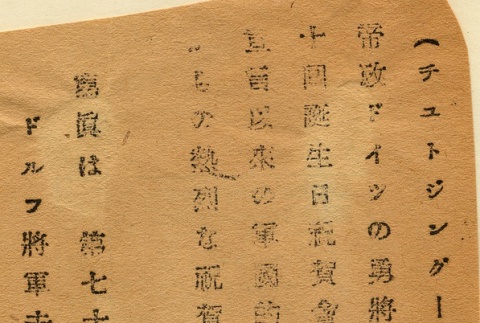 (チユトジングー
帝政ドイツの勇將
十回誕生日祝賀會
以來の軍國的
しの熱烈な祝賀
寫眞は 第七十
ドルフ將軍